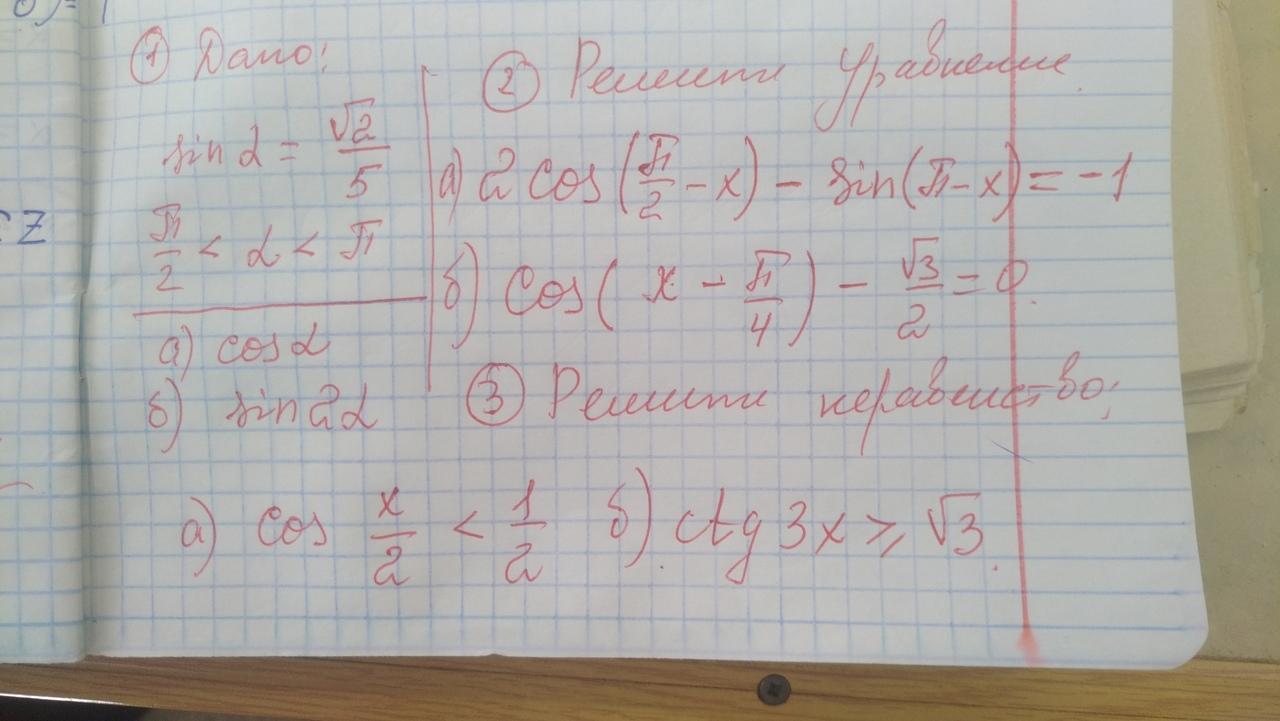 ① Дано:
sin α = √2/5
π/2 < α < π
а) cos α
б) sin 2α
② Решите Уравнение
а) 2 cos(π/2 - x) - sin(π - x) = -1
б) cos(x - π/4) - √3/2 = 0.
③ Решите неравенство:
а) cos x/2 < 1/2 б) ctg 3x ≥ √3.